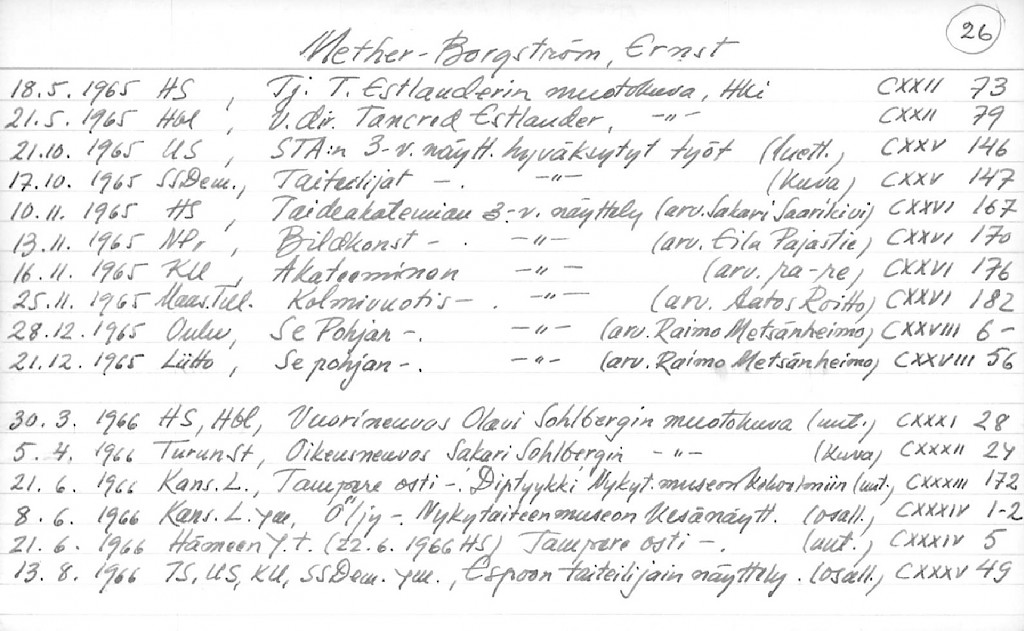 26
Mether-Borgström, Ernst
18.5. 1965 HS , Tj. T. Estlanderin muotokuva, Hki CXXII 73
21.5. 1965 Hbl , V.dir. Tancred Estlander, -"- CXXII 79
21.10. 1965 US , STA:n 3-v. näytt. hyväksytyt työt (luett.) CXXV 146
17.10. 1965 SSDem., Taiteilijat - . -"- (kuva) CXXV 147
10.11. 1965 HS , Taideakatemian 3-v. näyttely (arv. Sakari Saarikivi) CXXVI 167
13.11. 1965 NPr , Bildkonst - . -"- (arv. Eila Pajastie) CXXVI 170
16.11. 1965 KU , Akateeminen -"- (arv. pa-pe) CXXVI 176
25.11. 1965 Maas.Tul. Kolmivuotis - . -"- (arv. Aatos Roitto) CXXVI 182
28.12. 1965 Oulu, Se Pohjan - . -"- (arv. Raimo Metsänheimo) CXXVIII 6-
21.12. 1965 Liitto , Se pohjan - . -"- (arv. Raimo Metsänheimo) CXXVIII 56
30. 3. 1966 HS, Hbl, Vuorineuvos Olavi Sohlbergin muotokuva (uut.) CXXXI 28
5. 4. 1966 Turun St, Oikeusneuvos Sakari Sohlbergin -"- (kuva) CXXXII 24
21. 6. 1966 Kans. L., Tampere osti -. Diptyykki Nykyt. museon (uut., CXXXIII 172
8. 6. 1966 Kans. L. ym, Öljy -. Nykytaiteen museon kesänäytt. (osall.) CXXXIV 1-2
21. 6. 1966 Hämeen Y.t. (22.6. 1966 HS) Tampere osti - . (uut.) CXXXIV 5
13. 8. 1966 TS, US, KU, SSDem. ym., Espoon taiteilijain näyttely. (osall.) CXXXV 49